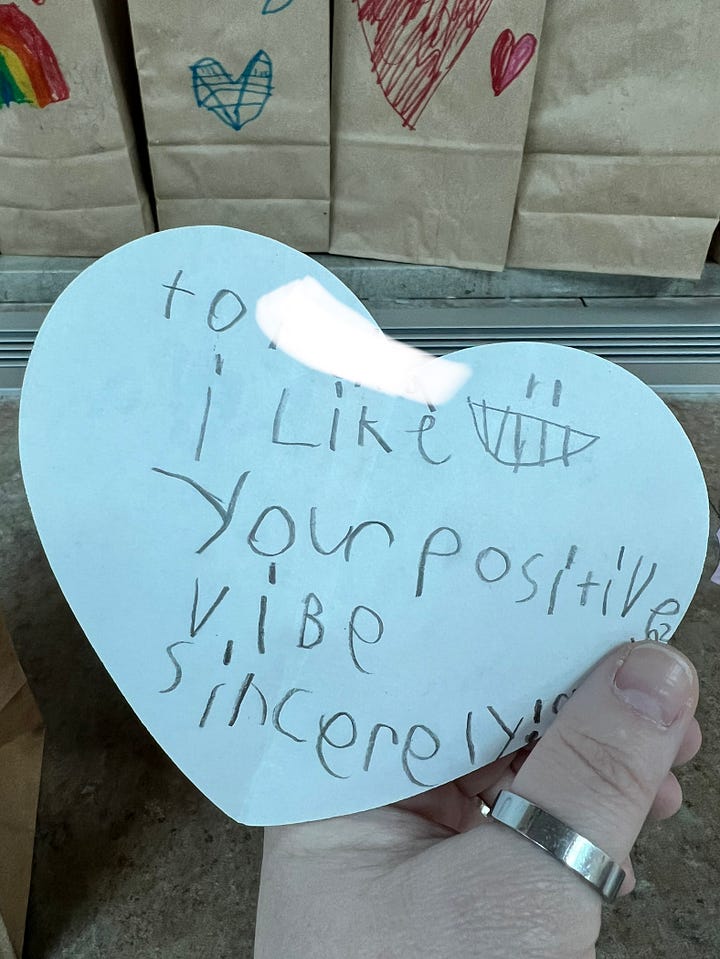 to
i Like
your positive
vibe
sincerely